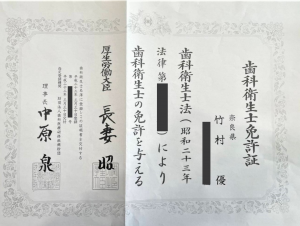 歯科衛生士免許証
奈良県
竹村 優
歯科衛生士法(昭和二十三年
法律第
)により
歯科衛生士の免許を与える
厚生労働大臣
長妻 昭
理事長
中原 泉